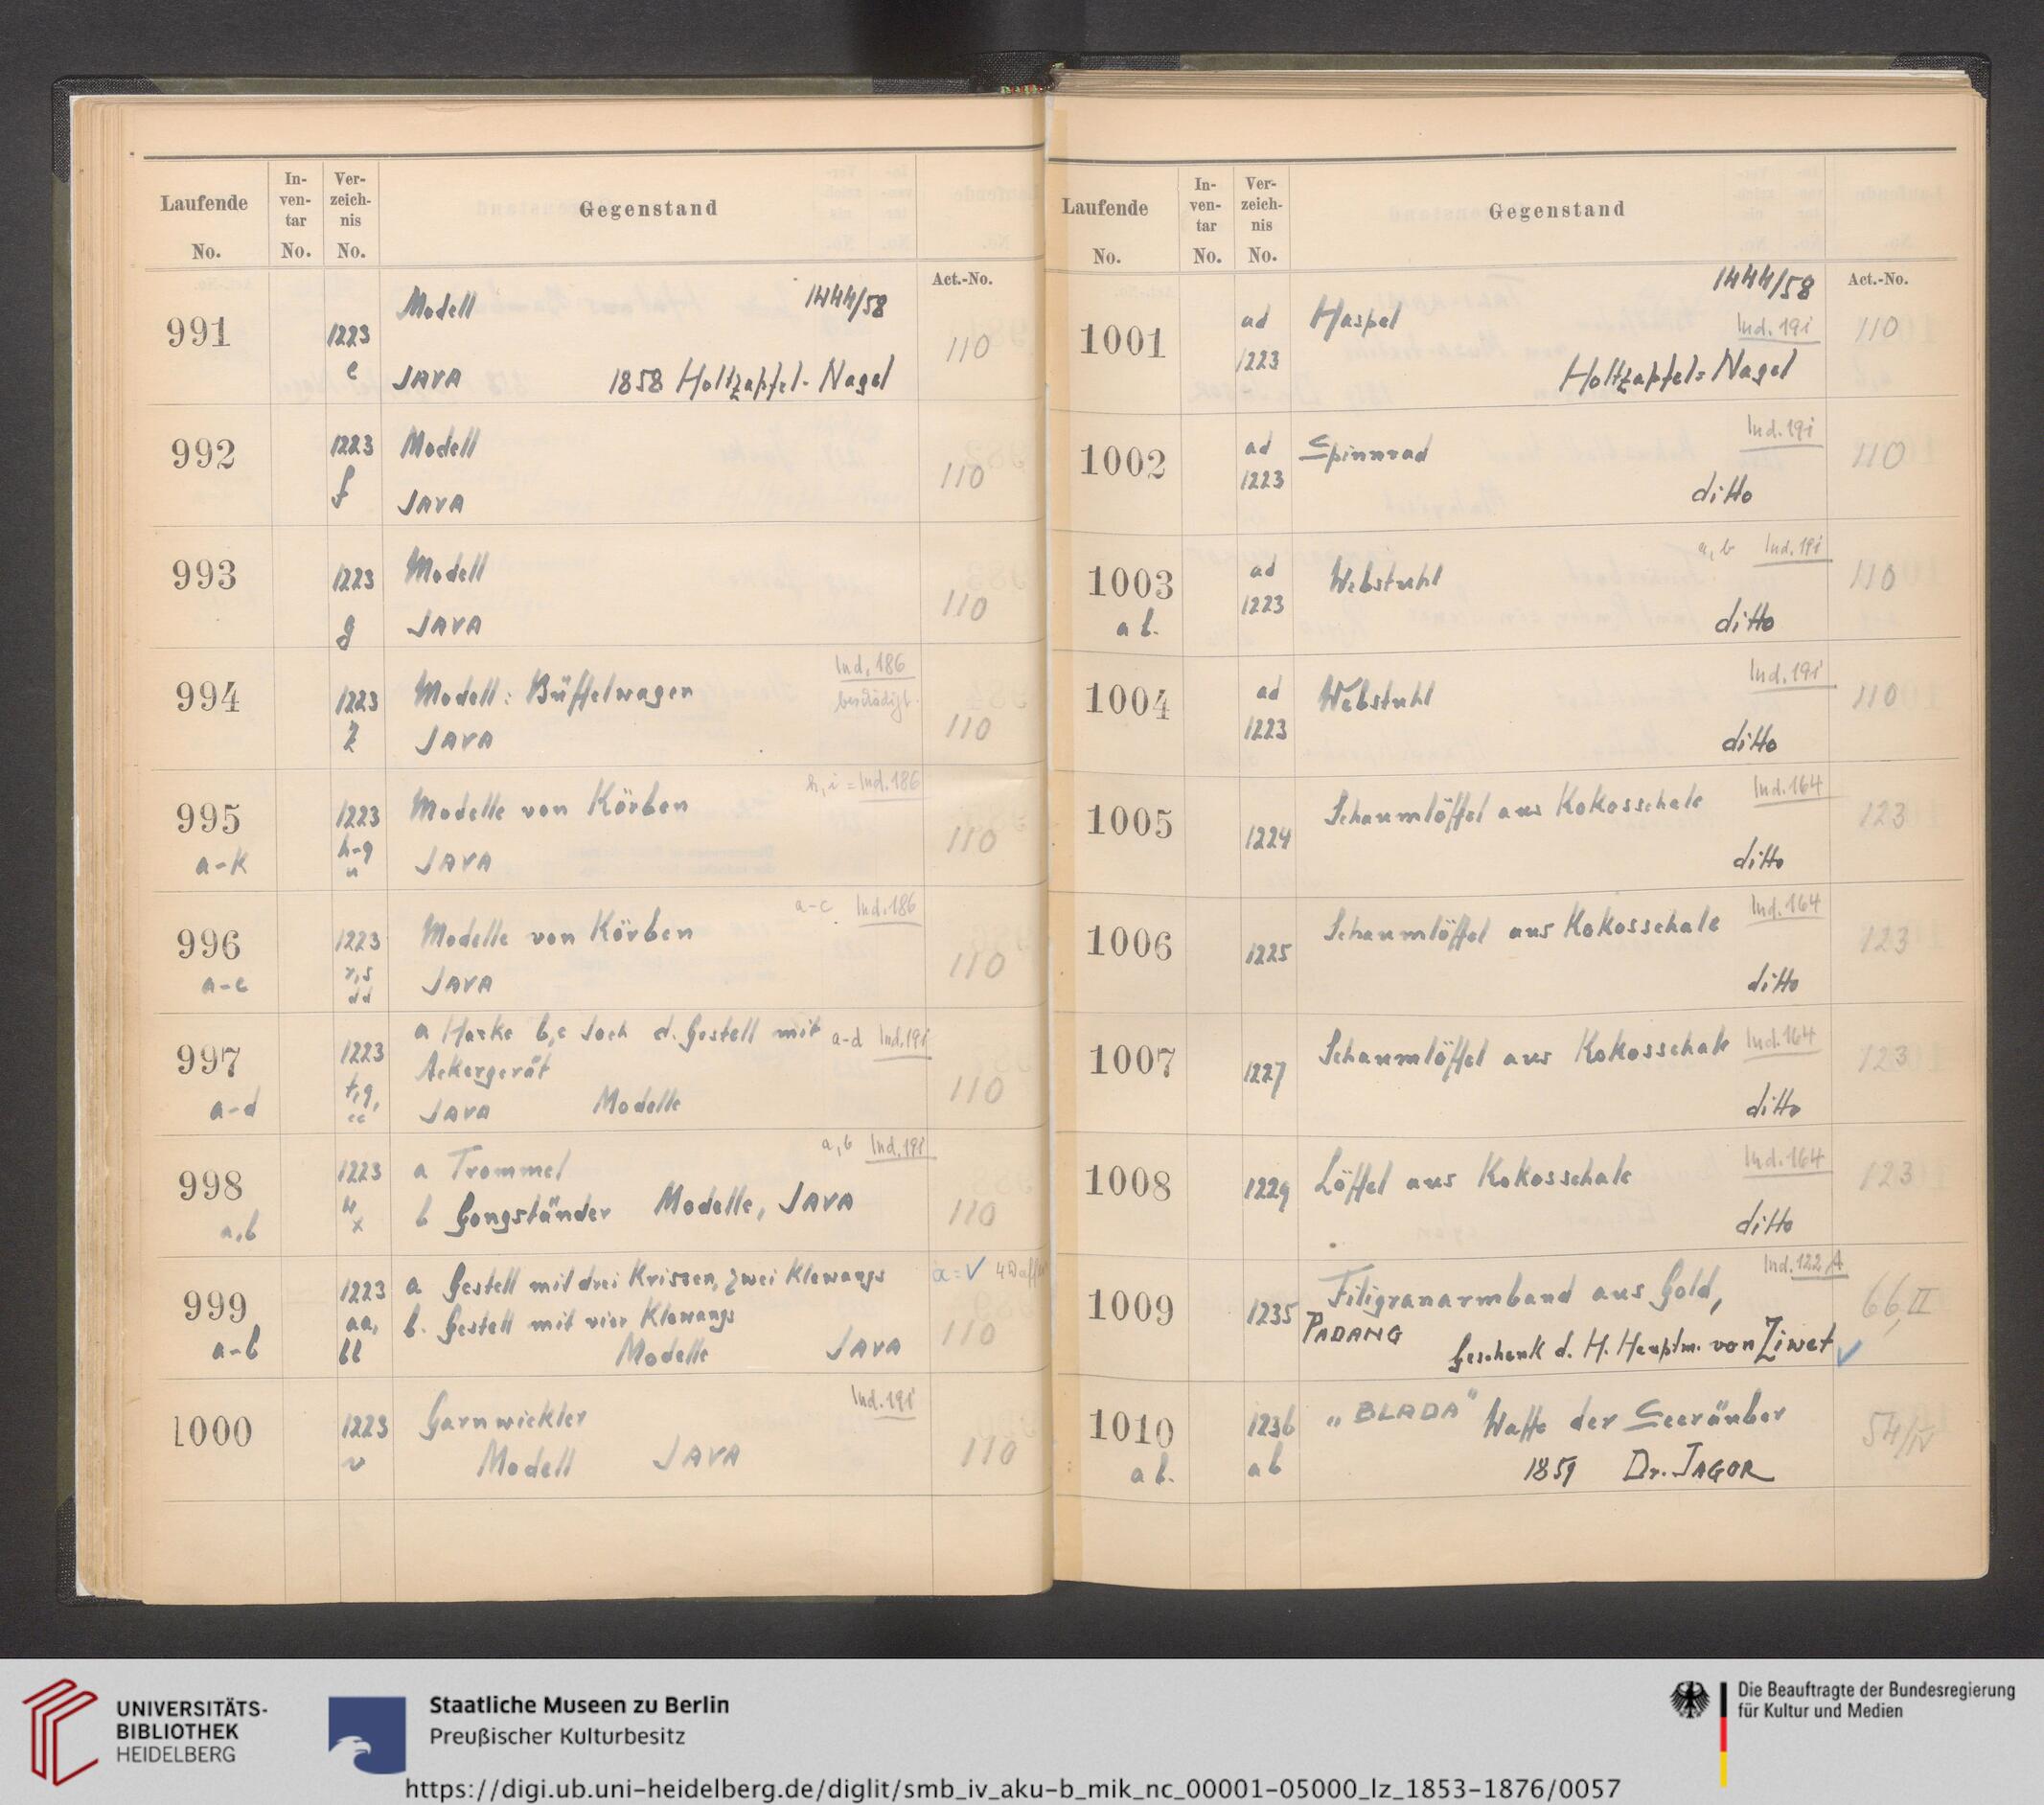 Laufende No.
In-ven-tar No.
Ver-zeich-nis No.
Gegenstand
Act.-No.
991
1223 e
Modell 1444/58
JAVA 1858 Holtzapfel-Nagel
110
992
1223 f
Modell
JAVA
110
993
1223 g
Modell
JAVA
110
994
1223 z
Modell: Büffelwagen
Ind. 186
beschädigt
JAVA
110
995
a-k
1223 h-q u
Modelle von Körben
h, i = Ind. 186
JAVA
110
996
a-c
1223 r,s dd
Modelle von Körben
a-c Ind. 186
JAVA
110
997
a-d
1223
cc
a Harke b,c Joch d. Gestell mit
a-d Ind. 19i
Ackergerät
JAVA Modelle
110
998
a,b
1223
x
a Trommel
a,b Ind. 19i
b Gongständer Modelle, JAVA
110
999
a-b
1223 aa, bb
a Gestell mit drei Krissen, zwei Klewangs
a = V
b. Gestell mit vier Klewangs
Modelle JAVA
110
1000
1223 v
Garnwickler
Ind. 19i
Modell JAVA
110
Laufende No.
In-ven-tar No.
Ver-zeich-nis No.
Gegenstand
Act.-No.
1444/58
1001
ad 1223
Haspel
Ind. 19i
Holtzapfel-Nagel
110
1002
ad 1223
Spinnrad
Ind. 19i
ditto
110
1003
a b.
ad 1223
Webstuhl
a, b Ind. 19i
ditto
110
1004
ad 1223
Webstuhl
Ind. 19i
ditto
110
1005
1224
Schaumlöffel aus Kokosschale
Ind. 164
ditto
123
1006
1225
Schaumlöffel aus Kokosschale
Ind. 164
ditto
123
1007
1227
Schaumlöffel aus Kokosschale
Ind. 164
ditto
123
1008
1229
Löffel aus Kokosschale
Ind. 164
ditto
123
1009
1235
Filigranarmband aus Gold,
Ind. 122 A
PADANG
Geschenk d. H. Hauptm. von Ziwet
66, II
1010
a b.
1236 a b
„BLADA" Waffe der Seeräuber
1859 Dr. JAGOR
54/IV
UNIVERSITÄTS-
BIBLIOTHEK
HEIDELBERG
Staatliche Museen zu Berlin
Preußischer Kulturbesitz
Die Beauftragte der Bundesregierung
für Kultur und Medien
https://digi.ub.uni-heidelberg.de/diglit/smb_iv_aku-b_mik_nc_00001-05000_lz_1853-1876/0057